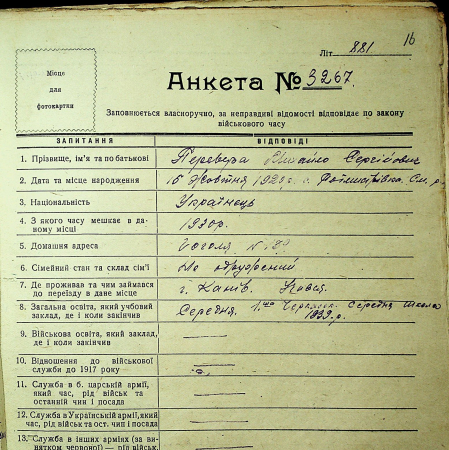 16
Літ. 881
Місце
для
фотокартки
Анкета № 3267.
Заповнюється власноручно, за неправдиві відомості відповідає по закону
військового часу
ЗАПИТАННЯ ВІДПОВІДІ
1. Прізвище, ім'я та по батькові Перевера Михайло Сергійович
2. Дата та місце народження 15 Жовтня 1920 г. с.
3. Національність Українець
4. З якого часу мешкає в да-
ному місці 1930 р.
5. Домашня адреса Гоголя №
6. Сімейний стан та склад сім'ї Не одружений
7. Де проживав та чим займався
до переїзду в дане місце г. Канів.
8. Загальна освіта, який учбовий
заклад, де і коли закінчив Середня. Середня школа
1939 р.
9. Військова освіта, який заклад,
де і коли закінчив —
10. Відношення до військової
служби до 1917 року —
11. Служба в б. царській армії,
який час, рід військ та
останній чин і посада —
12. Служба в Українській армії, який
час, рід військ та ост. чин і посада —
13. Служба в інших арміях (за ви-
нятком червоної) — рід військ, —